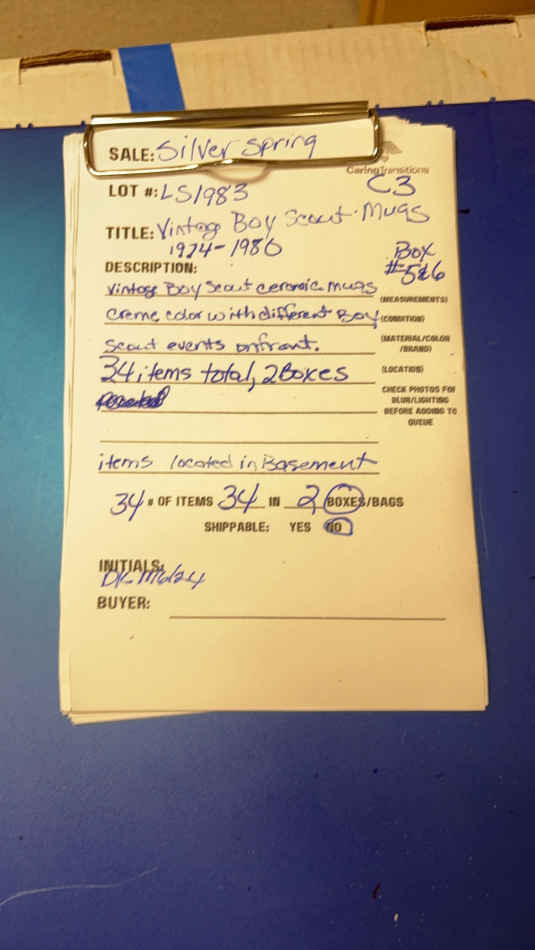 SALE: Silver Spring
CaringTransitions
LOT #: LS1983 C3
TITLE: Vintage Boy Scout Mugs
1974-1980
Box
#5&6
DESCRIPTION:
Vintage Boy Scout ceramic mugs
(MEASUREMENTS)
Creme color with different Boy
(CONDITION)
Scout events on front.
(MATERIAL/COLOR
/BRAND)
34 items total, 2 Boxes
(LOCATION)
CHECK PHOTOS FOR
BLUR/LIGHTING
BEFORE ADDING TO
QUEUE
items located in Basement
34 # OF ITEMS 34 IN 2 BOXES/BAGS
SHIPPABLE: YES NO
INITIALS:
BUYER: